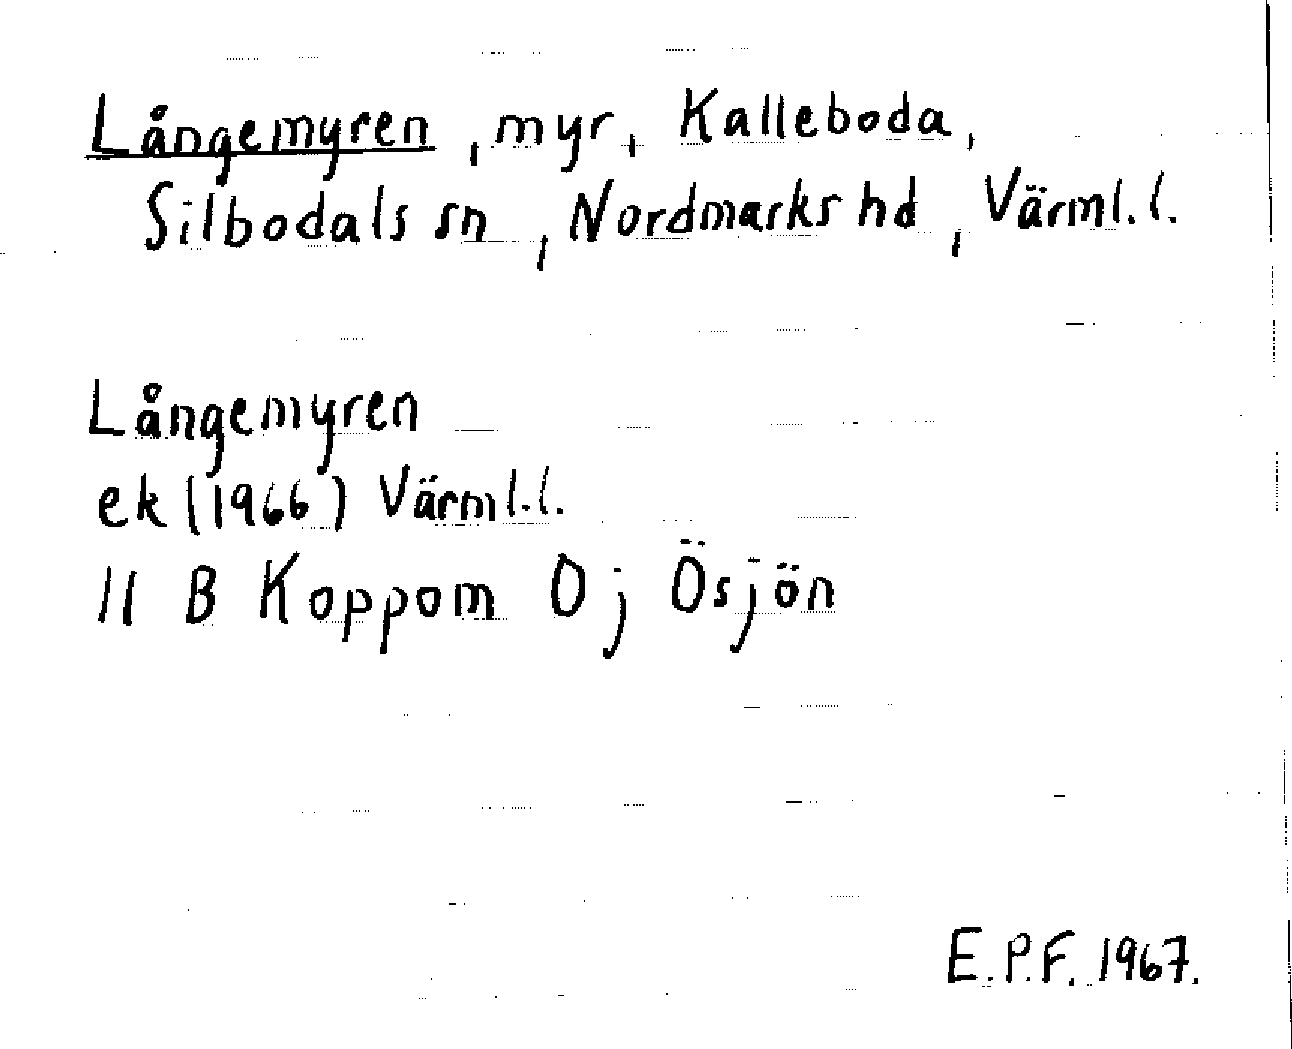 Långemyren, myr, Kalleboda,
Silbodals sn, Nordmarks hd, Värml. l.
Långemyren
ek (1966) Värml. l.
11 B Koppom 0 j Ösjön
E.P.F. 1967.